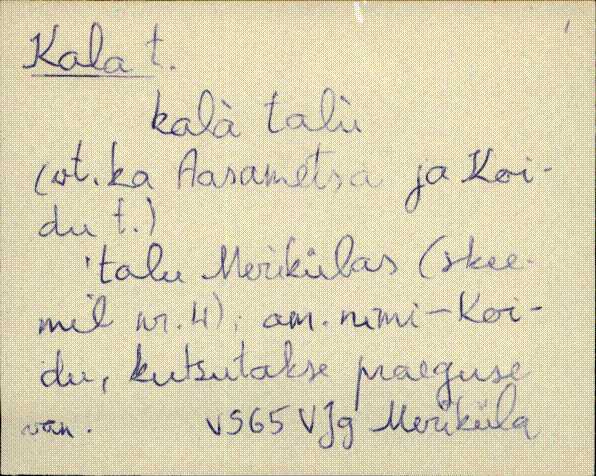 Kala t.
kalà talù
(vt. ka Aasametsa ja Koi-
du t.)
'talu Merikülas (skee-
mil nr. 4); am. nimi - Koi-
du, kutsutakse praeguse
van. VS65 VJg Meriküla